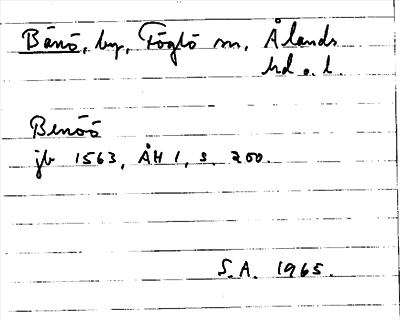 Bänö, by, Föglö sn, Ålands
hd o. l.
Benöö
jb 1563, ÅH 1, s. 200.
S.A. 1965.